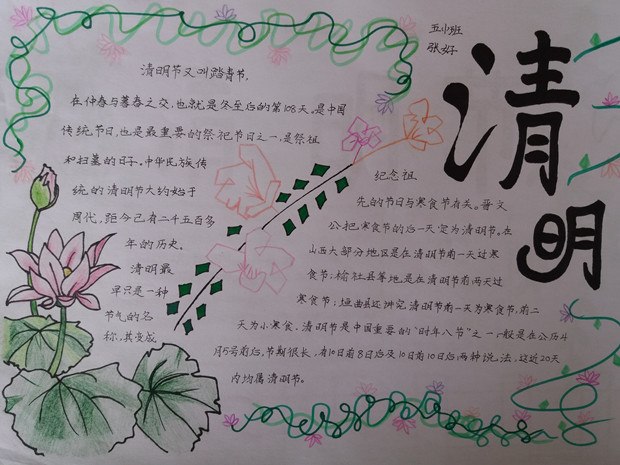 五小班
张好
清明
清明节又叫踏青节，
在仲春与暮春之交，也就是冬至后的第108天。是中国
传统节日，也是最重要的祭祀节日之一，是祭祖
和扫墓的日子。中华民族传
统的清明节大约始于
周代，距今已有二千五百多
年的历史。
清明最
早只是一种
节气的名
称，其变成
纪念祖
先的节日与寒食节有关。晋文
公把寒食节的后一天定为清明节。在
山西大部分地区是在清明节前一天过寒
食节；榆社县等地是在清明节前两天过
寒食节；垣曲县还讲究清明节前一天为寒食节，前二
天为小寒食。清明节是中国重要的“时年八节”之一，一般是在公历4
月5号前后，节期很长，有10日前8日后及10日前10日后两种说法，这近20天
内均属清明节。